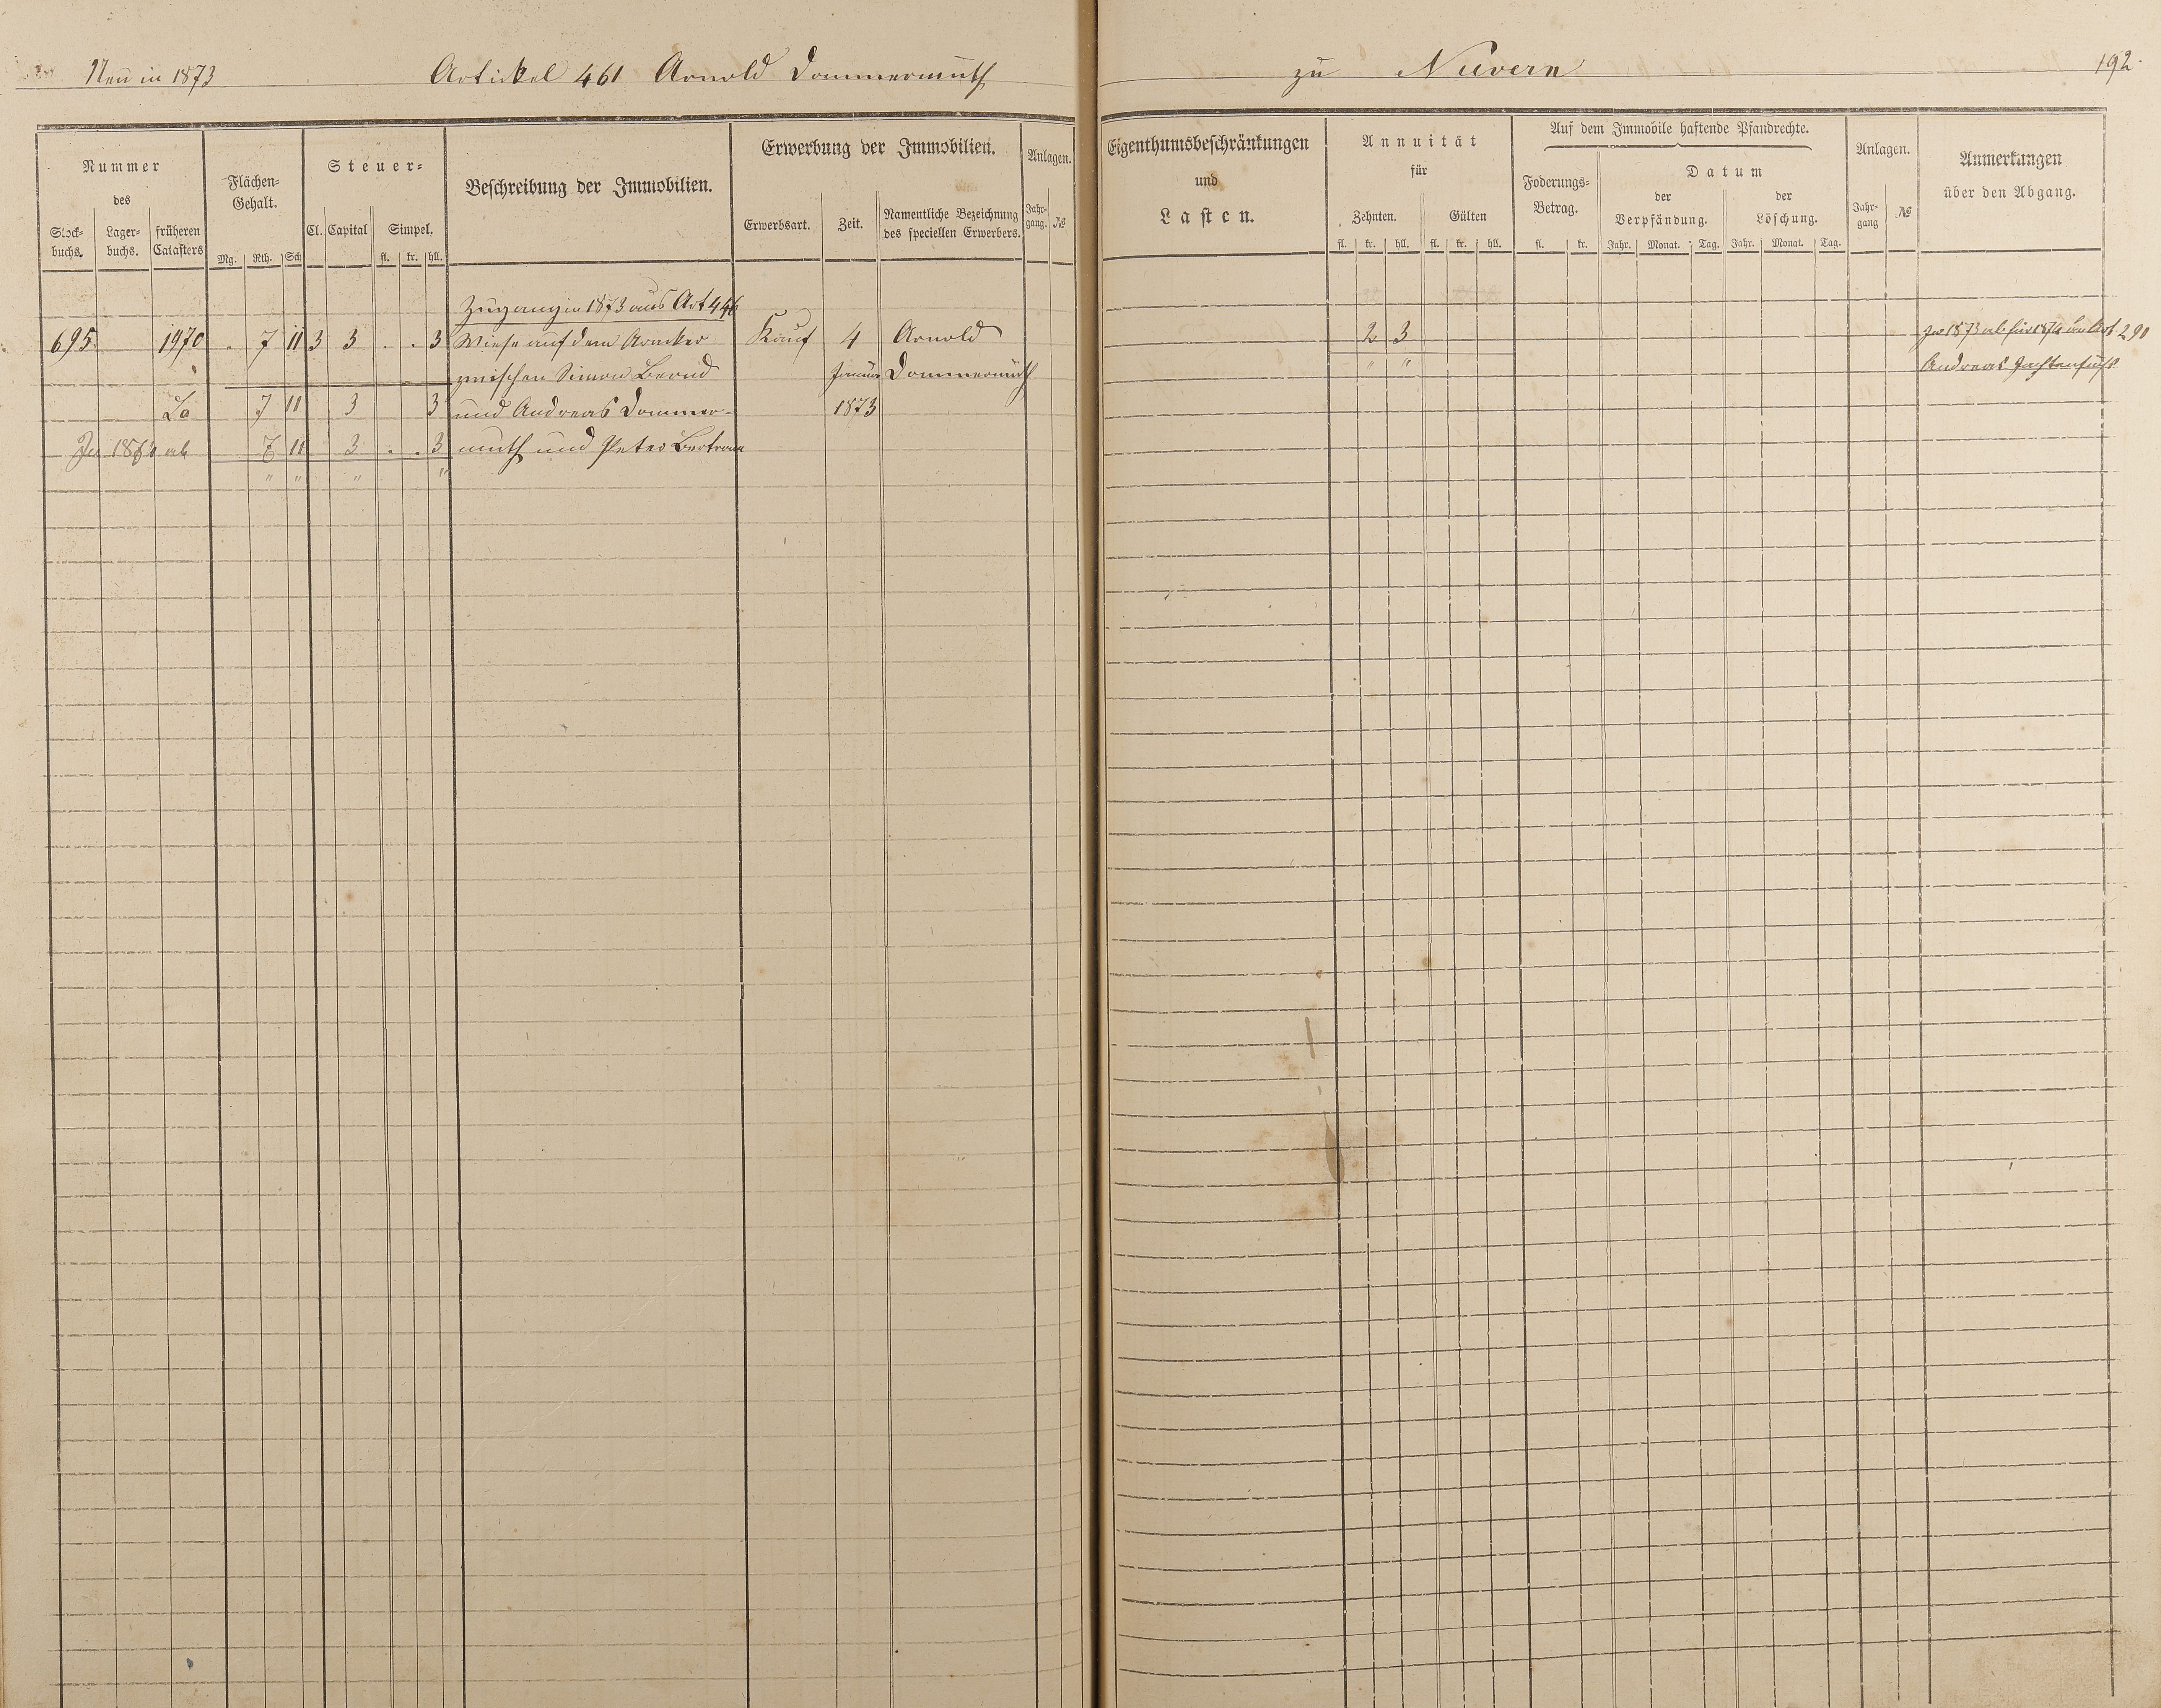 Neu in 1873 Artickel 461 Arnold Dommermuth zu Nievern 192.
Nummer
des
Stock-
buchs.
Lager-
buchs.
früheren
Catasters
Flächen-
Gehalt.
Mg. Rth. Sch
Steuer-
Cl. Capital Simpel.
fl. kr. hll.
Beschreibung der Immobilien.
Erwerbung der Immobilien.
Erwerbsart. Zeit.
Namentliche Bezeichnung
des speciellen Erwerbers.
Anlagen.
Jahr-
gang. №
Eigenthumsbeschränkungen
und
Lasten.
Annuität
für
Zehnten. Gülten
fl. kr. hll. fl. kr. hll.
Auf dem Immobile haftende Pfandrechte.
Foderungs-
Betrag.
fl. kr.
Datum
der
Verpfändung.
der
Löschung.
Jahr. Monat. Tag. Jahr. Monat. Tag.
Anlagen.
Jahr-
gang №
Anmerkungen
über den Abgang.
Zugang in 1873 aus Art 446
695 1970 . 7 11 3 3 . . 3 Wiese auf dem Kauf 4 Arnold 2 3 In 1873 ab für 1874 an Art 290
zwischen Simon Bernd Januar Dommermuth " " Andreas
La 7 11 3 3 und Andreas Dommer- 1873
In 1874 ab 7 11 3 . . 3 muth und Peter Bertram
" " " "